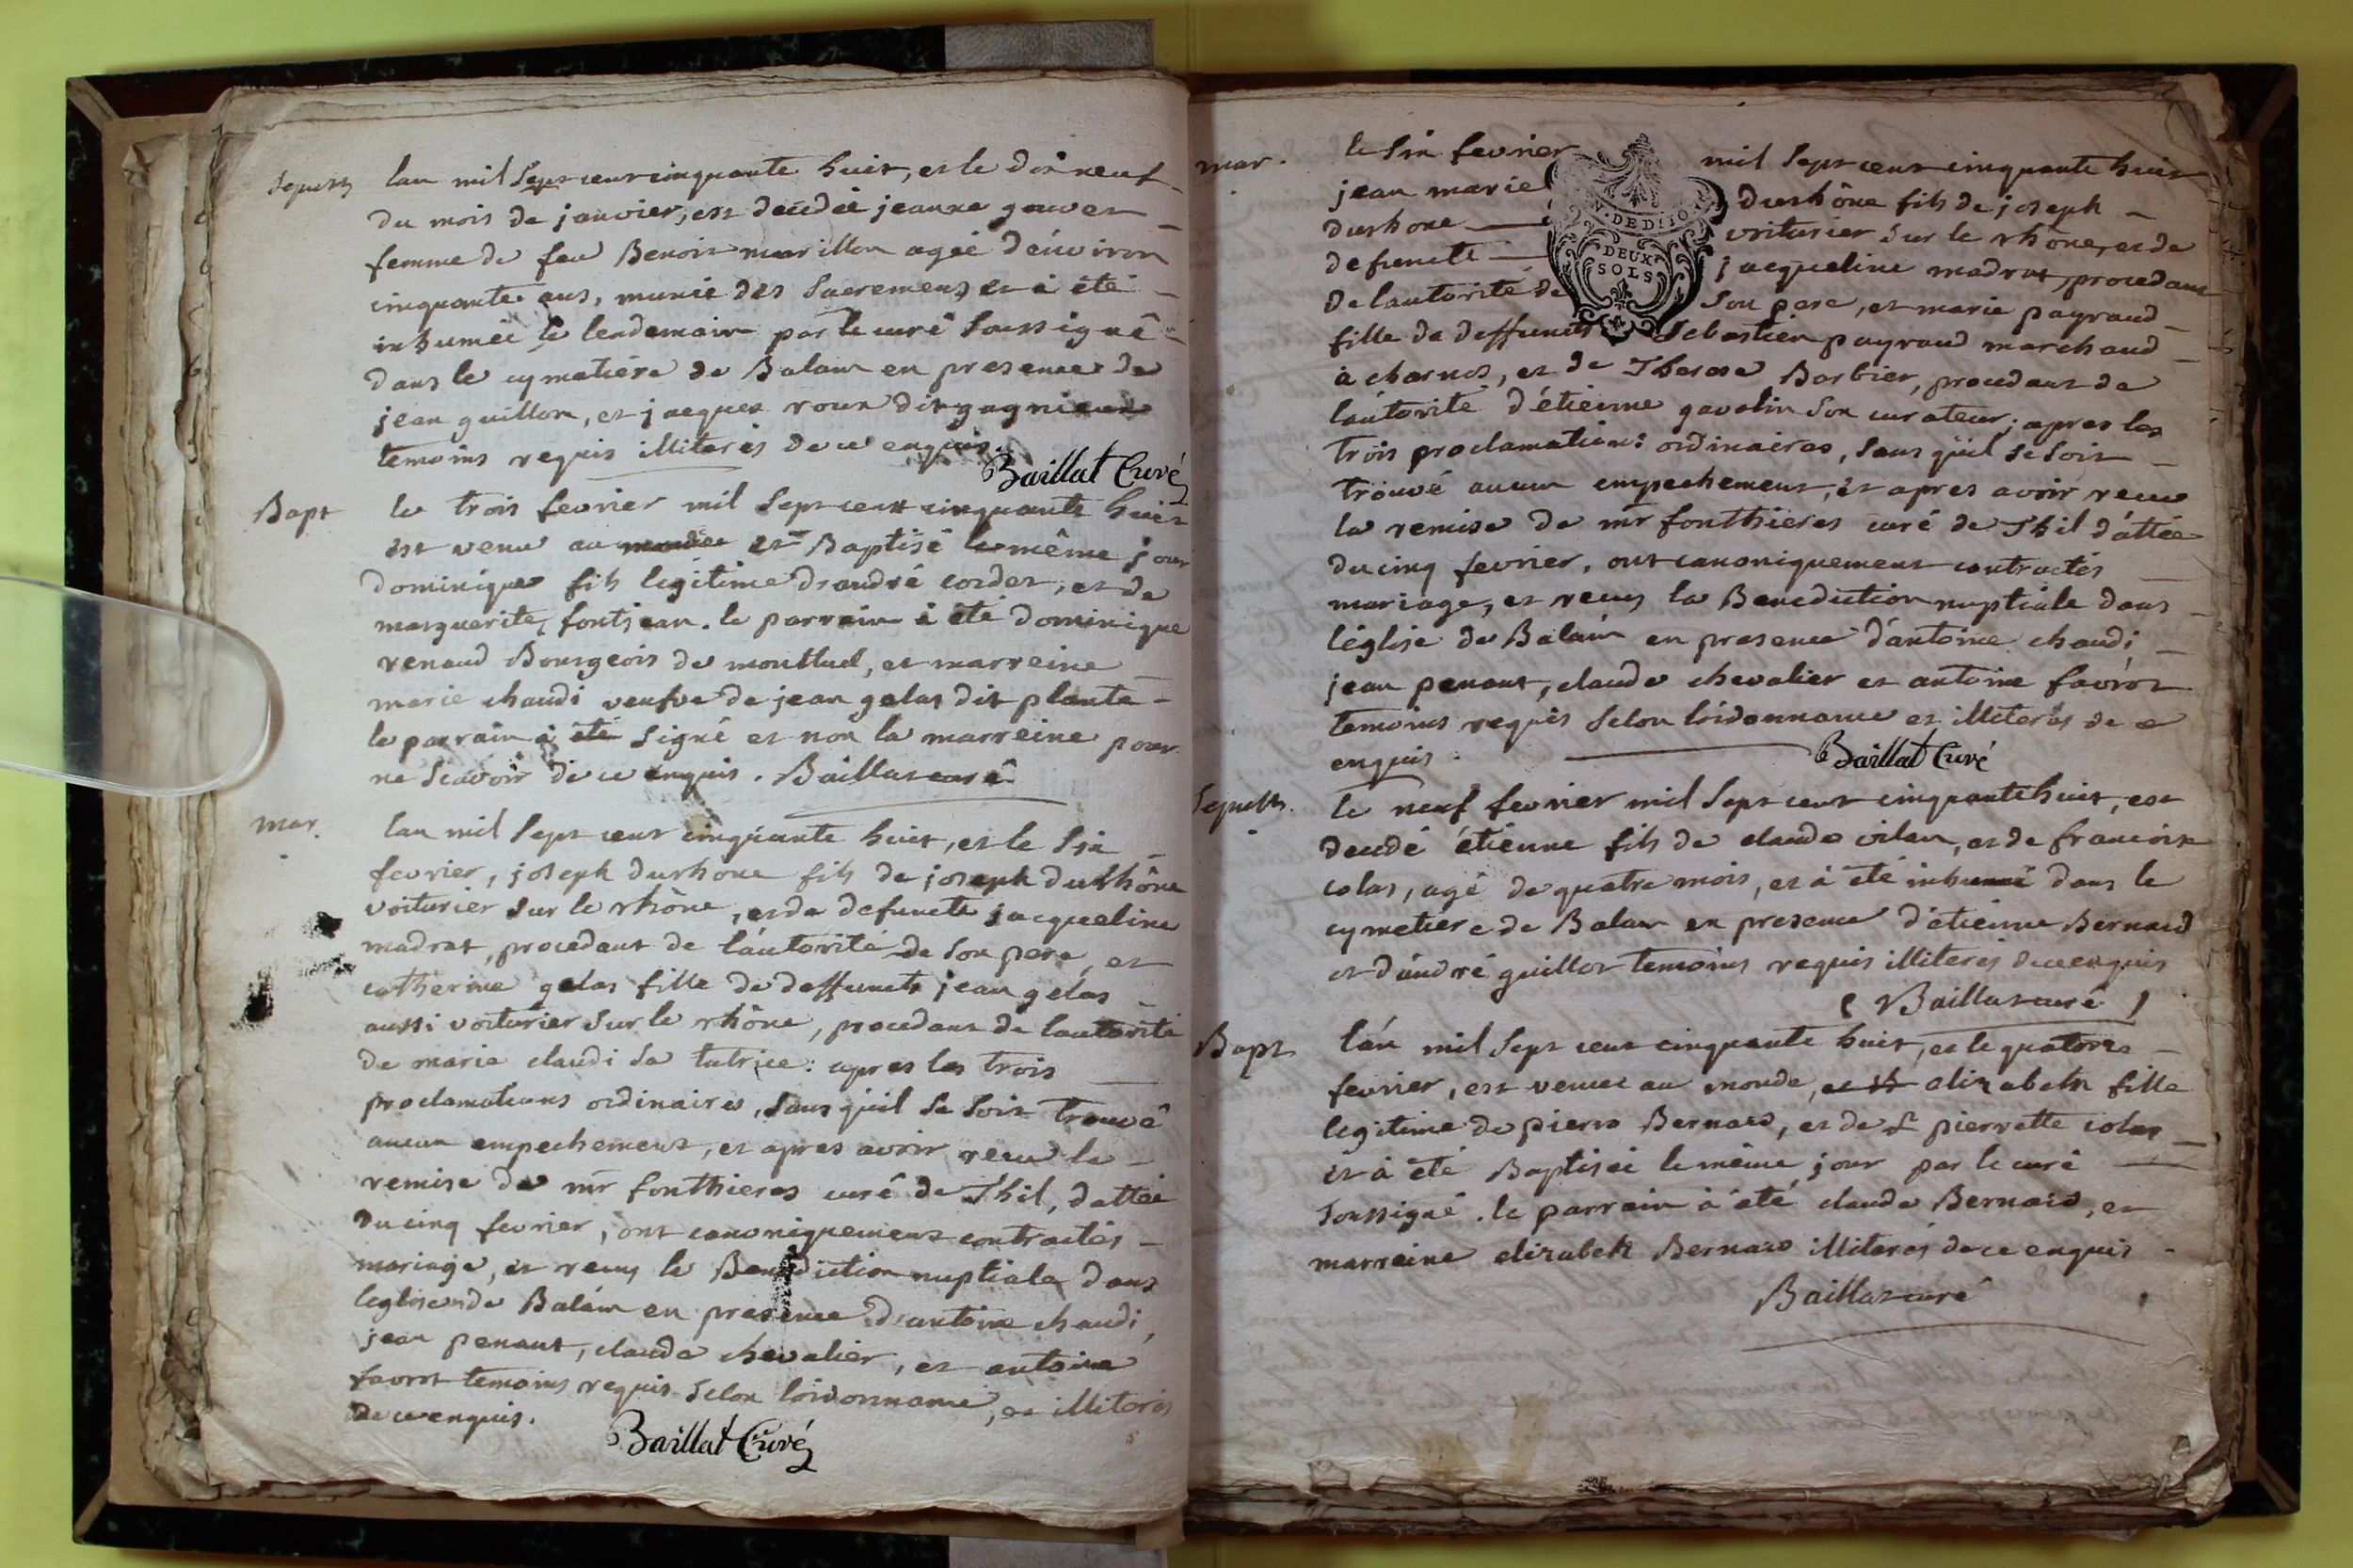 Sepult
lan mil Sept cent cinquante huit, et le dix neuf
du mois de janvier, est decedée jeanne gouvet
femme de feu Benoit marillon agée dénviron
cinquante ans, munie des Sacremens et à été
inhumée le lendemain par le curé Soussigné
dans le cymetiére de Balam en presence de
jean guillon, et jacques roux dit gagnieux
temoins requis illiterés de ce enquis.
Baillat Curé
Bapt
le trois fevrier mil Sept cent cinquante huit
est venu au monde et Baptisé le même jour
dominique fils legitime d'andré cordet, et de
marguerite fontjean. le parrain à été dominique
renaud Bourgeois de montluel, et marreine
marie chaudi veufve de jean gelas dit planta
le parrain à été Signé et non la marreine pour
ne Scavoir de ce enquis. Baillat curé
mar.
lan mil Sept cent cinquante huit, et le Six
fevrier, joseph durhone fils de joseph durhône
voiturier Sur le rhône, et de defuncte jacqueline
madrat, procedant de láutorité de Son pere, et
catherine gelas fille de deffunct jean gelas
aussi voiturier Sur le rhône, procedant de lautorité
de marie claudi Sa tutrice: apres les trois
proclamations ordinaires, Sans quil Se Soit trouvé
aucun empechement, et apres avoir receu la
remise de mr fonthieres curé de Thil, dattée
du cinq fevrier, ont canoniquement contractés
mariage, et reçus la Benediction nuptiale dans
leglise de Balám en presence d'antoine chaudi,
jean penant, claude chevalier, et antoine
favrot temoins requis Selon lordonnance, et illiterés
de ce enquis.
Baillat Curé
mar.
le Six fevrier mil Sept cent cinquante huit
jean marie durhône fils de joseph
durhone voiturier Sur le rhône, et de
defuncte jacqueline madrat, procedant
de lautorité de Son pere, et marie payraud
fille de deffunct Sebastien payraud marchand
DEUX
SOLS
à charnos, et de Therese Barbier, procedant de
láutorité d'étienne gavolin Son curateur; apres les
trois proclamations ordinaires, Sans quil Se Soit
trouvé aucun empechement, et apres avoir receu
la remise de mr fonthieres curé de Thil dáttée
du cinq fevrier, ont canoniquement contractés
mariage, et reçus la Benediction nuptiale dans
léglise de Balám en presence d'antoine chaudi
jean penant, claude chevalier et antoine favrot
temoins requis Selon lordonnance et illiterés de ce
enquis.
Baillat Curé
Sepult.
le neuf fevrier mil Sept cent cinquante huit, est
decedé étienne fils de claude vilan, et de francoise
colas, agé de quatre mois, et à été inhumé dans le
cymetiére de Balam en presence d'étienne Bernard
et d'andré guillot temoins requis illiterés de ce enquis
Baillat curé
Bapt
lán mil Sept cent cinquante huit, et le quatorze
fevrier, est venue au monde, elizabeth fille
legitime de pierre Bernard, et de pierrette colas
et à été Baptisée le même jour par le curé
Soussigné. le parrain à été claude Bernard, et
marreine elizabeth Bernard illiterés de ce enquis
Baillat curé